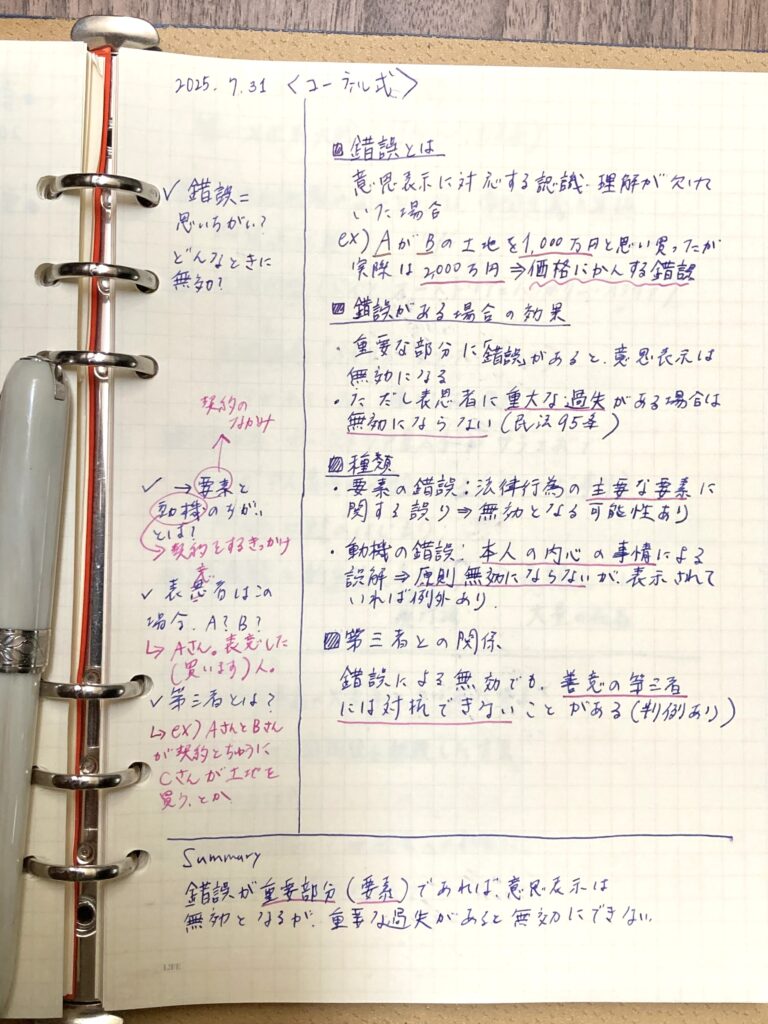 2025.7.31 〈コーネル式〉
✓ 錯誤=
思いちがい?
どんなときに
無効?
契約の
なかみ
✓ →要素と
動機のちがい
とは?
→契約をするきっかけ
意
✓ 表意者はこの
場合、A?B?
↳Aさん。表意した
(買います)人。
✓ 第三者とは?
↳ex)AさんとBさん
が契約とちゅうに
Cさんが土地を
買う、とか
錯誤とは
意思表示に対応する認識・理解が欠けて
いた場合
ex) AがBの土地を1,000万円と思い買ったが
実際は2000万円⇒価格にかんする錯誤
錯誤がある場合の効果
・重要な部分に錯誤があると、意思表示は
無効になる
・ただし表意者に重大な過失がある場合は
無効にならない(民法95条)
種類
・要素の錯誤:法律行為の主要な要素に
関する誤り⇒無効となる可能性あり
・動機の錯誤:本人の内心の事情による
誤解⇒原則無効にならないが、表示されて
いれば例外あり.
第三者との関係
錯誤による無効でも、善意の第三者
には対抗できないことがある(判例あり)
Summary
錯誤が重要部分(要素)であれば、意思表示は
無効となるが、重要な過失があると無効にできない.
LIFE